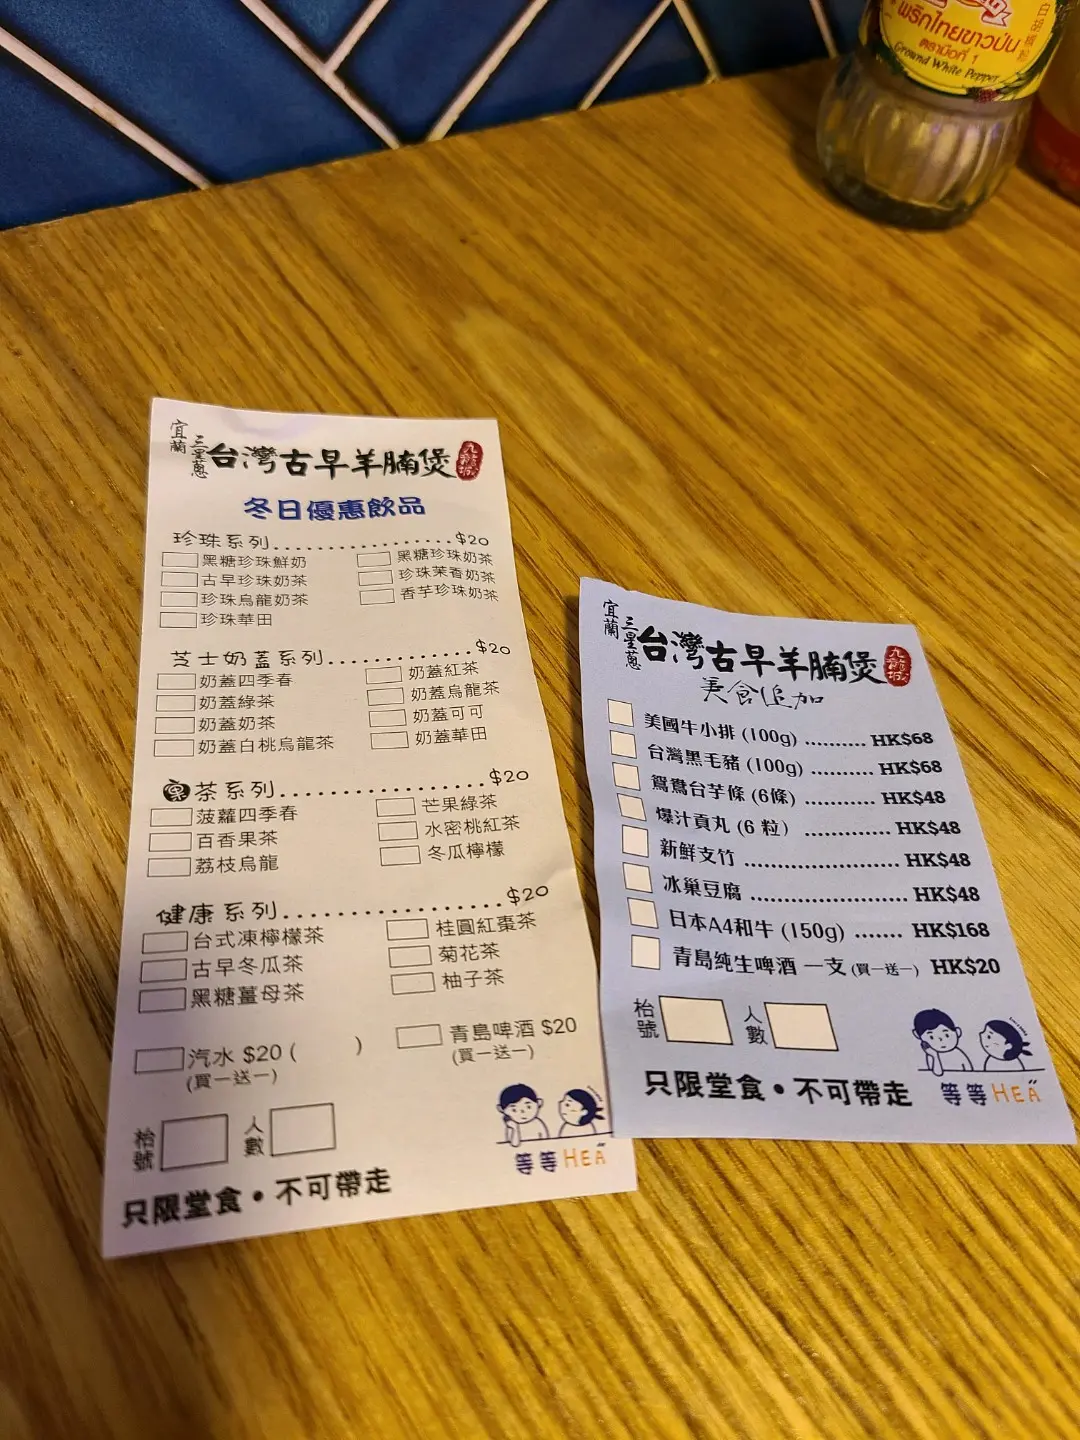 พริกไทยขาวป่น
ตรามือที่ 1
Ground White Pepper
宜蘭
三星蔥
台灣古早羊腩煲
九龍城
冬日優惠飲品
珍珠系列................$20
黑糖珍珠鮮奶
黑糖珍珠奶茶
古早珍珠奶茶
珍珠茉香奶茶
珍珠烏龍奶茶
香芋珍珠奶茶
珍珠華田
芝士奶蓋系列................$20
奶蓋四季春
奶蓋紅茶
奶蓋綠茶
奶蓋烏龍茶
奶蓋奶茶
奶蓋可可
奶蓋白桃烏龍茶
奶蓋華田
菓茶系列................$20
菠蘿四季春
芒果綠茶
百香果茶
水密桃紅茶
荔枝烏龍
冬瓜檸檬
健康系列................$20
台式凍檸檬茶
桂圓紅棗茶
古早冬瓜茶
菊花茶
黑糖薑母茶
柚子茶
汽水 $20 ( )
(買一送一)
青島啤酒 $20
(買一送一)
枱號
人數
等等HEA
只限堂食•不可帶走
宜蘭
三星蔥
台灣古早羊腩煲
九龍城
美食追加
美國牛小排 (100g) .......... HK$68
台灣黑毛豬 (100g) .......... HK$68
鴛鴦台芋條 (6條) ........... HK$48
爆汁貢丸 (6 粒) ............ HK$48
新鮮支竹 .................... HK$48
冰巢豆腐 .................... HK$48
日本A4和牛 (150g) ....... HK$168
青島純生啤酒 一支 (買一送一) HK$20
枱號
人數
只限堂食•不可帶走
等等HEA